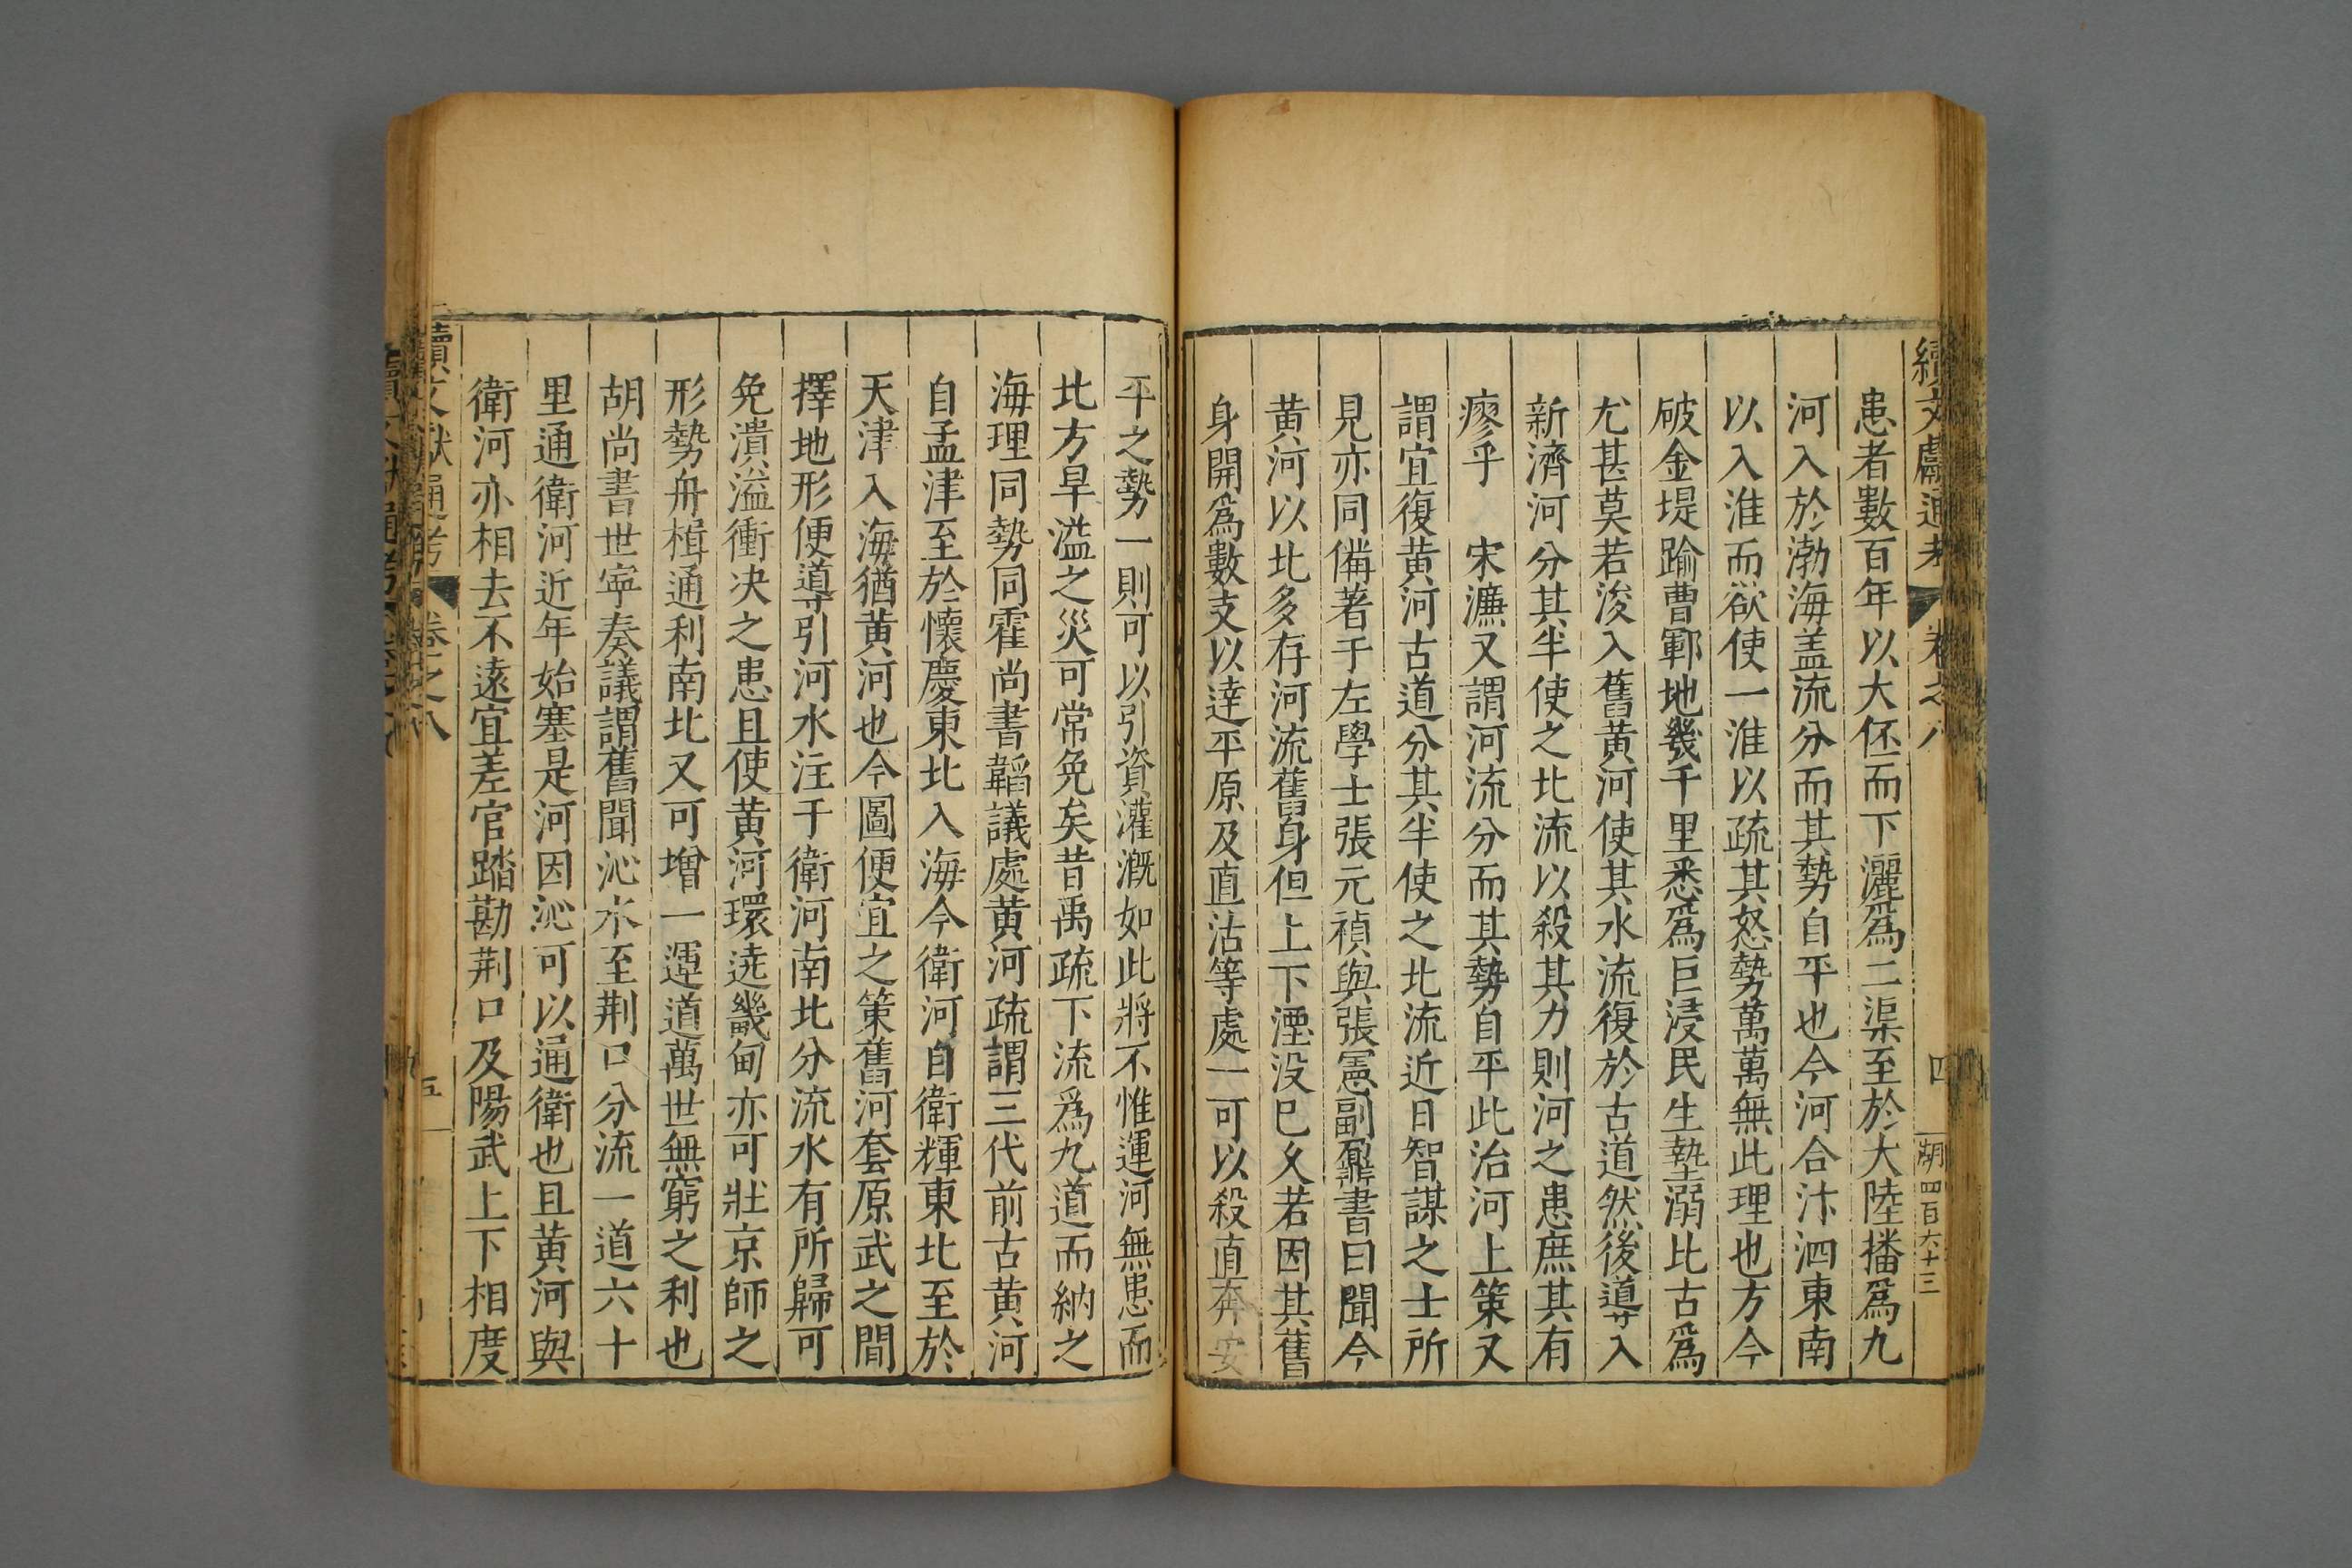 續文獻通考
卷之八
四
胡四百六十三
患者數百年以大伾而下灑爲二渠至於大陸播爲九
河入於渤海盖流分而其勢自平也今河合汴泗東南
以入淮而欲使一淮以疏其怒勢萬萬無此理也方今
破金堤踰曹鄆地幾千里悉爲巨浸民生墊溺比古爲
尤甚莫若浚入舊黄河使其水流復於古道然後導入
新濟河分其半使之北流以殺其力則河之患庶其有
瘳乎 宋濂又謂河流分而其勢自平此治河上策又
謂宜復黄河古道分其半使之北流近日智謀之士所
見亦同備著于左學士張元禎與張憲副鼐書曰聞今
黄河以北多存河流舊身但上下湮没已久若因其舊
身開爲數支以達平原及直沽等處一可以殺直奔安
平之勢一則可以引資灌溉如此將不惟運河無患而
北方旱溢之災可常免矣昔禹疏下流爲九道而納之
海理同勢同霍尚書韜議處黄河疏謂三代前古黄河
自孟津至於懷慶東北入海今衛河自衛輝東北至於
天津入海猶黄河也今圖便宜之策舊河套原武之間
擇地形便導引河水注于衛河南北分流水有所歸可
免潰溢衝决之患且使黄河環遶畿甸亦可壯京師之
形勢舟楫通利南北又可增一運道萬世無窮之利也
胡尚書世寧奏議謂舊聞沁水至荆口分流一道六十
里通衛河近年始塞是河因沁可以通衛也且黄河與
衛河亦相去不遠宜差官踏勘荆口及陽武上下相度
續文獻通考
卷之八
五